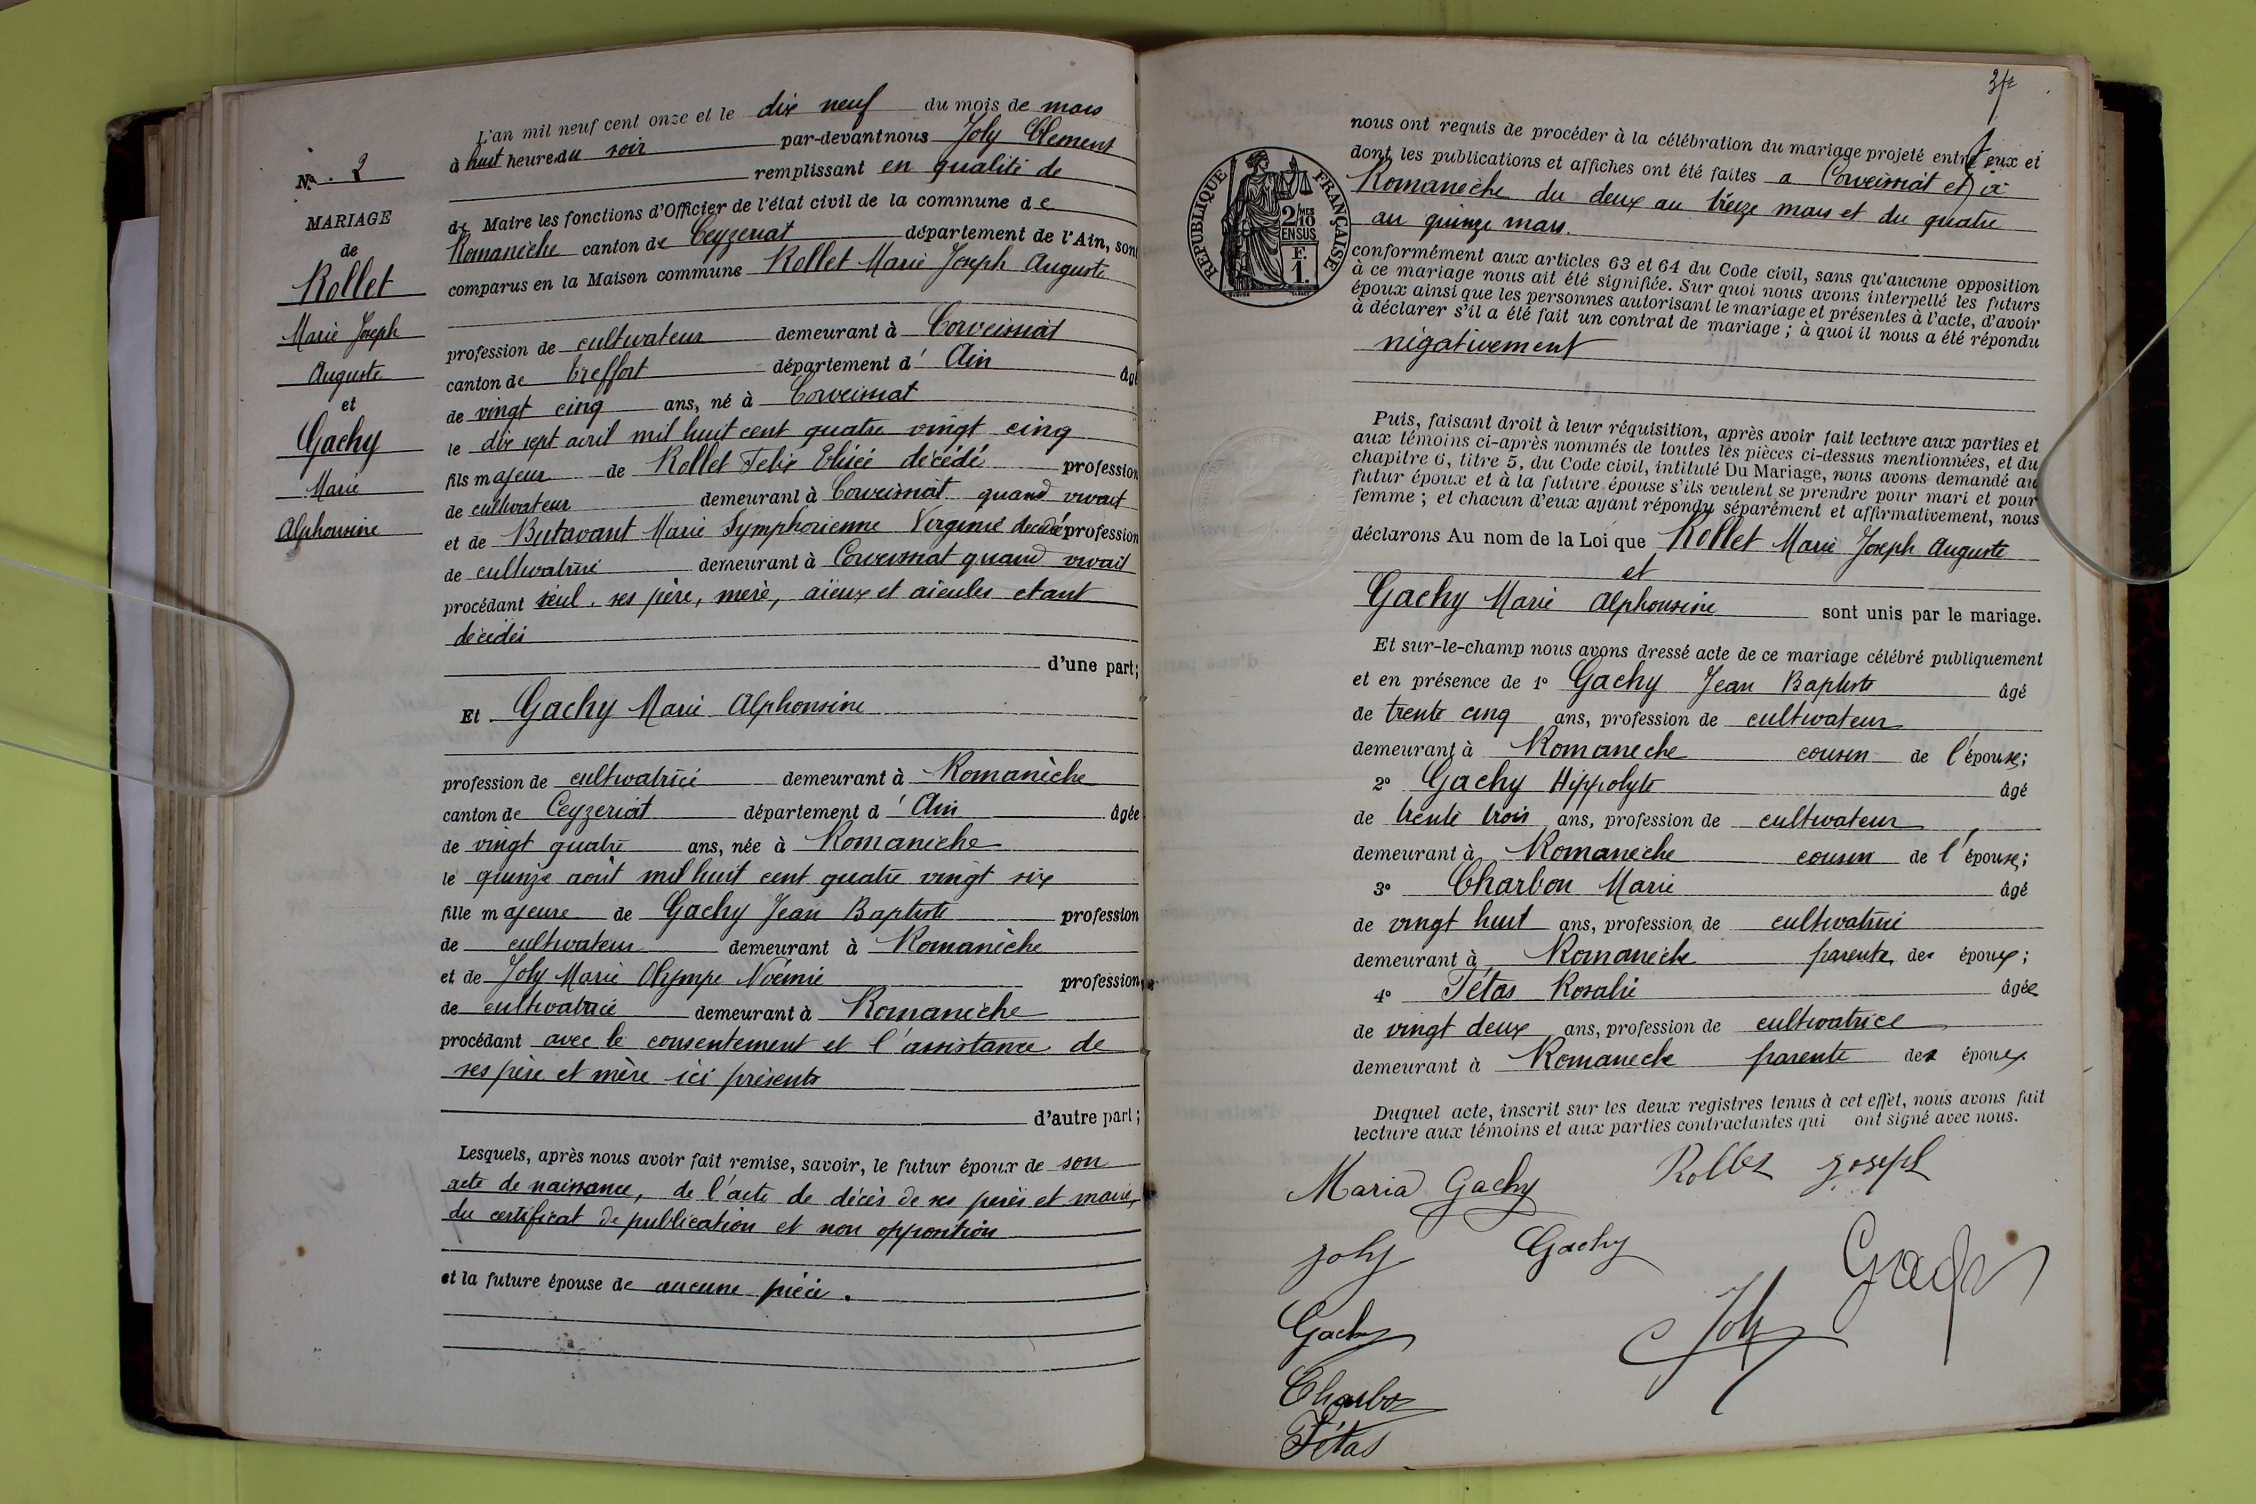 L'an mil neuf cent onze et le dix neuf du mois de mars
à huit heure du soir par-devant nous Joly Clement
remplissant en qualité de
de Maire les fonctions d'Officier de l'état civil de la commune de
Romanèche canton de Ceyzeriat département de l'Ain, sont
comparus en la Maison commune Rollet Marie Joseph Auguste
profession de cultivateur demeurant à Corveissiat
canton de Treffort département d' Ain âgé
de vingt cinq ans, né à Corveissiat
le dix sept avril mil huit cent quatre vingt cinq
fils majeur de Rollet Felix Elisée décédé profession
de cultivateur demeurant à Corveissiat quand vivait
et de Butavant Marie Symphorienne Virginie décédée profession
de cultivatrice demeurant à Corveissiat quand vivait
procédant seul, ses père, mère, aïeux et aïeules etant
décédés
d'une part;
Et Gachy Marie Alphonsine
profession de cultivatrice demeurant à Romanèche
canton de Ceyzeriat département d' Ain âgée
de vingt quatre ans, née à Romanèche
le quinze août mil huit cent quatre vingt six
fille majeure de Gachy Jean Baptiste profession
de cultivateur demeurant à Romanèche
et de Joly Marie Olympe Noémie profession
de cultivatrice demeurant à Romanèche
procédant avec le consentement et l'assistance de
ses père et mère ici présents
d'autre part;
Lesquels, après nous avoir fait remise, savoir, le futur époux de son
acte de naissance, de l'acte de décès de ses pères et
du certificat de publication et non opposition
et la future épouse de aucune pièce.
No. 2
MARIAGE
de
Rollet
Marie Joseph
Auguste
et
Gachy
Marie
Alphonsine
nous ont requis de procéder à la célébration du mariage projeté entre eux et
dont les publications et affiches ont été faites a Corveissiat et à
Romanèche du deux au treize mars et du quatre
au quinze mars.
conformément aux articles 63 et 64 du Code civil, sans qu'aucune opposition
à ce mariage nous ait été signifiée. Sur quoi nous avons interpellé les futurs
époux ainsi que les personnes autorisant le mariage et présentes à l'acte, d'avoir
à déclarer s'il a été fait un contrat de mariage; à quoi il nous a été répondu
négativement
RÉPUBLIQUE FRANÇAISE
2/MES
10
EN SUS
F.
1.
Puis, faisant droit à leur réquisition, après avoir fait lecture aux parties et
aux témoins ci-après nommés de toutes les pièces ci-dessus mentionnées, et du
chapitre 6, titre 5, du Code civil, intitulé Du Mariage, nous avons demandé au
futur époux et à la future épouse s'ils veulent se prendre pour mari et pour
femme; et chacun d'eux ayant répondu séparément et affirmativement, nous
déclarons Au nom de la Loi que Rollet Marie Joseph Auguste
et
Gachy Marie Alphonsine sont unis par le mariage.
Et sur-le-champ nous avons dressé acte de ce mariage célébré publiquement
et en présence de 1° Gachy Jean Baptiste âgé
de trente cinq ans, profession de cultivateur
demeurant à Romaneche cousin de l'épouse;
2° Gachy Hippolyte âgé
de trente trois ans, profession de cultivateur
demeurant à Romanèche cousin de l'épouse;
3° Charbon Marie âgé
de vingt huit ans, profession de cultivatrice
demeurant à Romanèche parente des époux;
4° Tétas Rosalie âgée
de vingt deux ans, profession de cultivatrice
demeurant à Romaneche parente des époux
Duquel acte, inscrit sur les deux registres tenus à cet effet, nous avons fait
lecture aux témoins et aux parties contractantes qui ont signé avec nous.
Maria Gachy Rollet Joseph
Joly Gachy Gachy
Gachy Joly
Charbon
Tétas